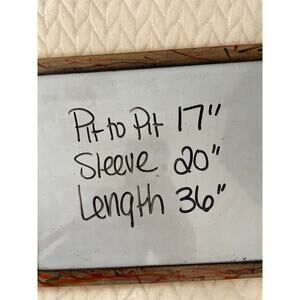 Pit to Pit 17"
Sleeve 20"
Length 36"